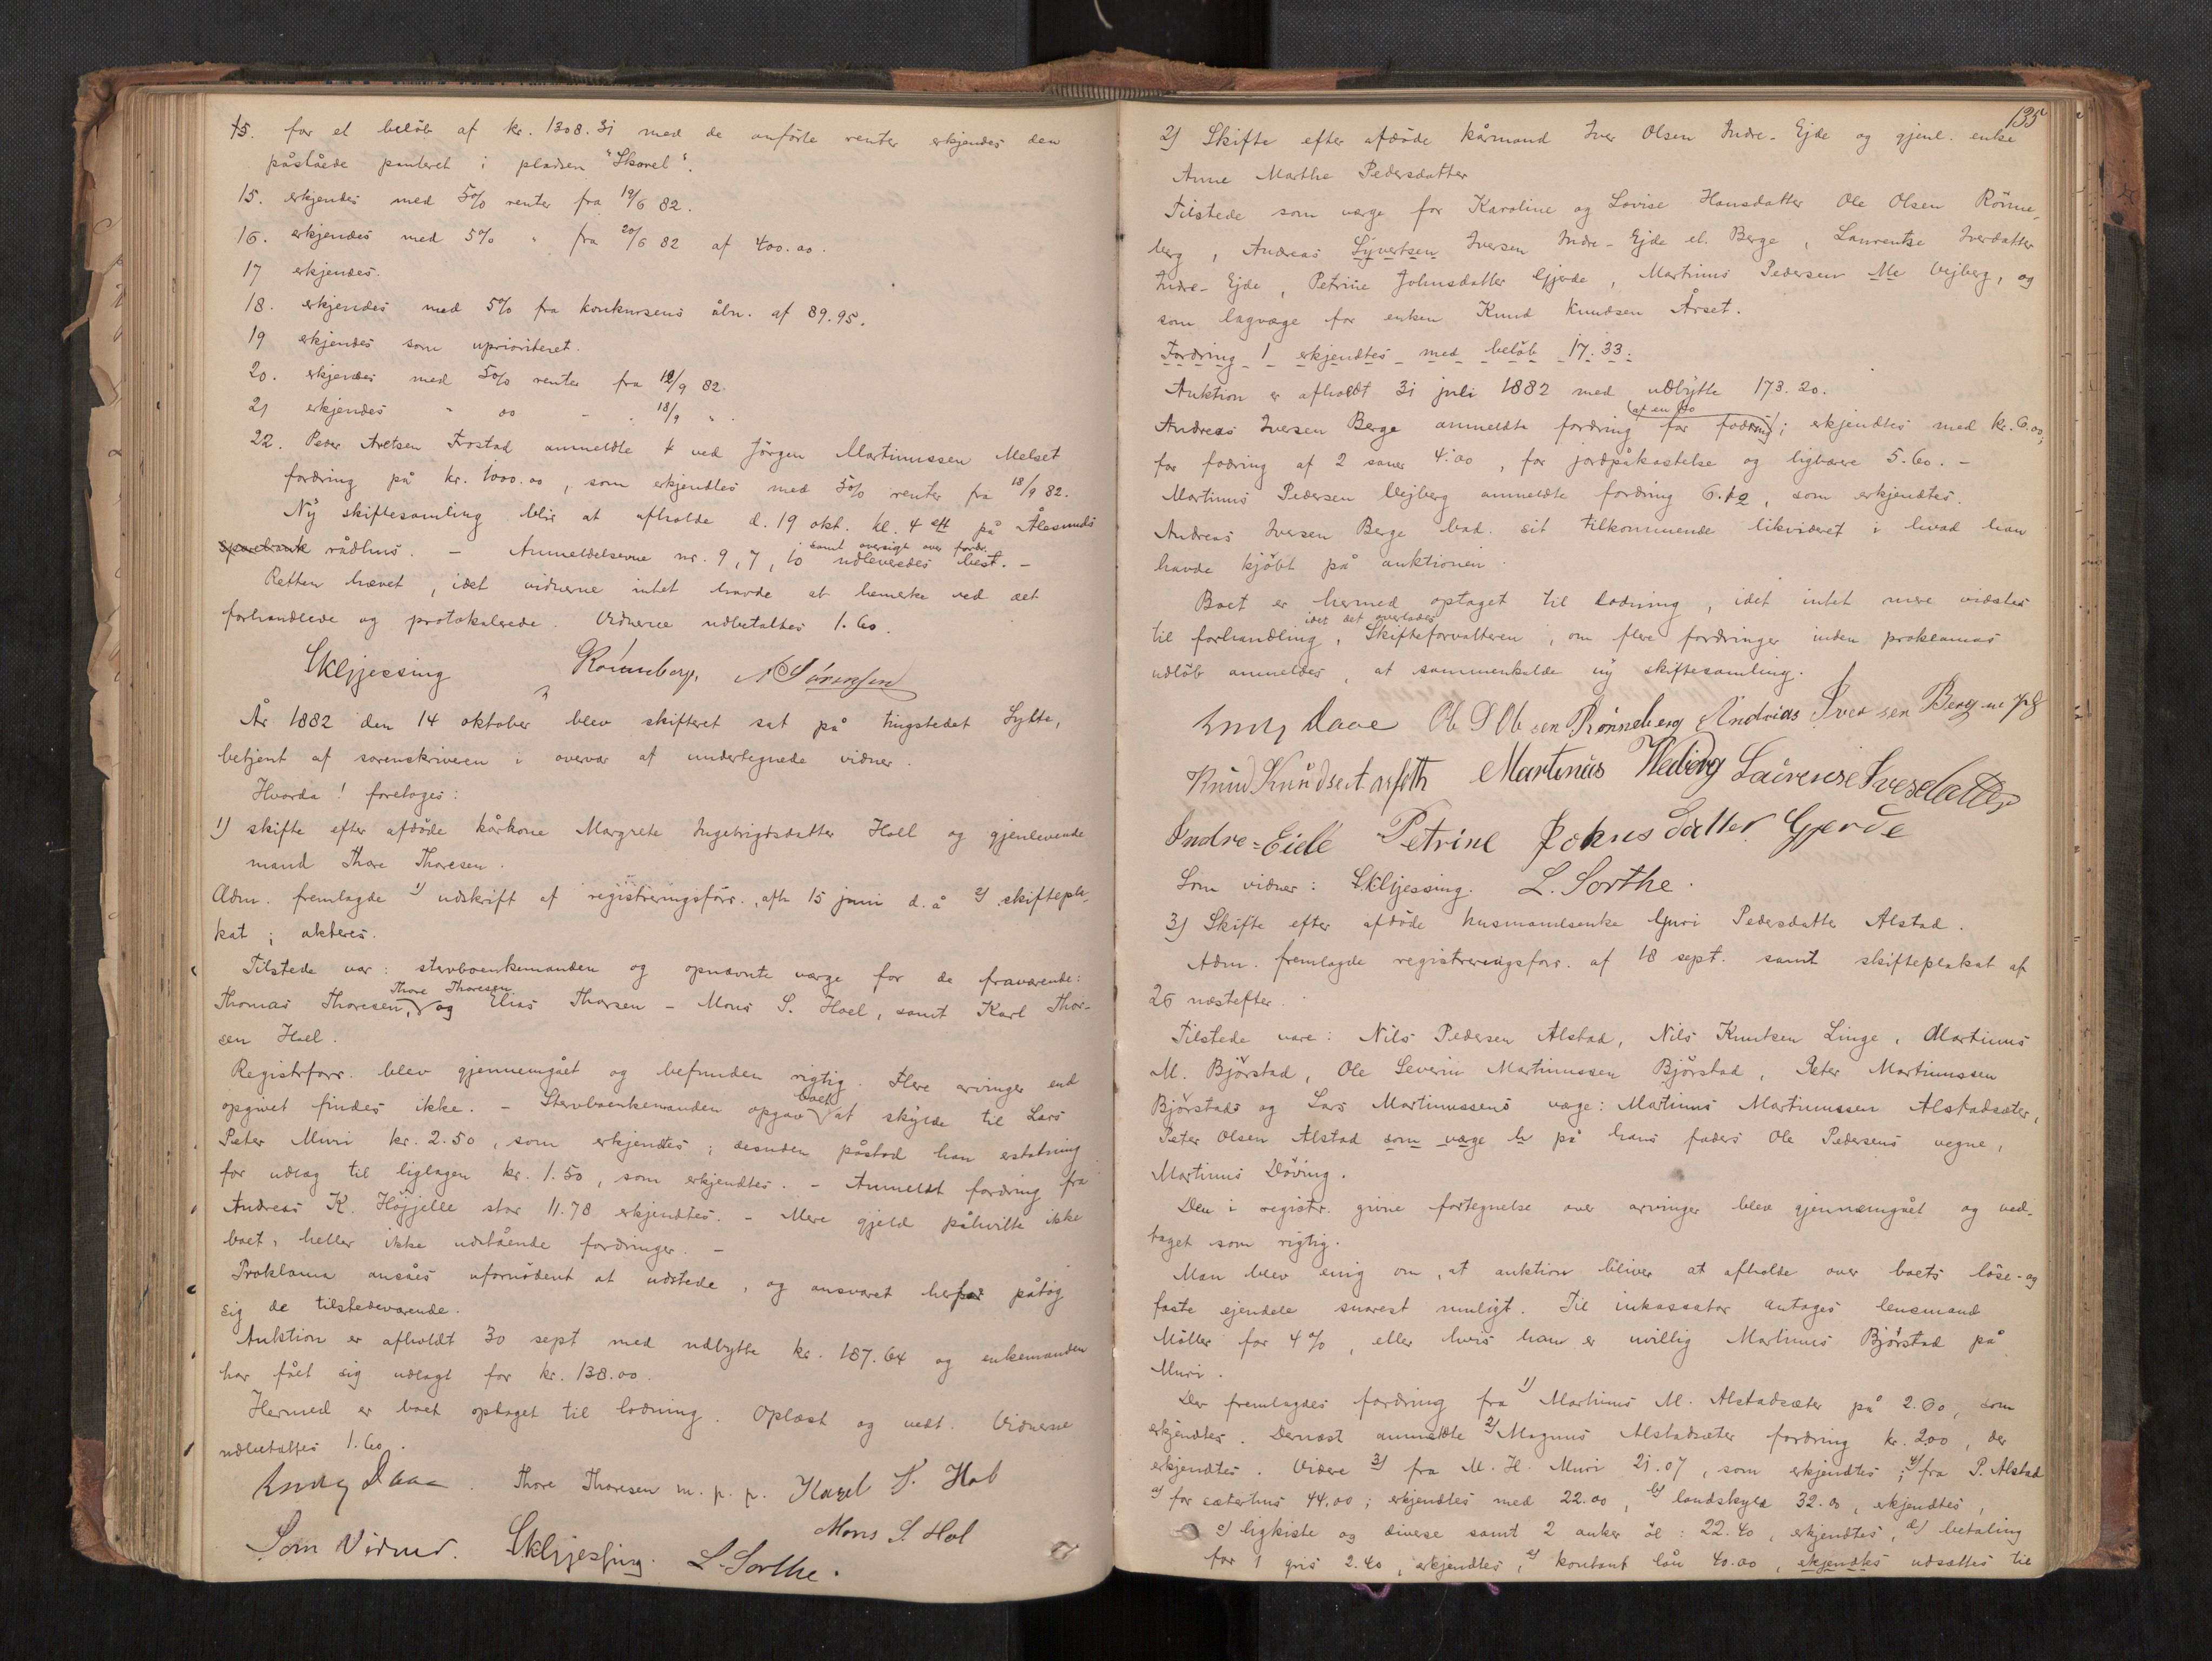 15. for et beløb af kr. 1308.31 med de anførte renter erkjendes den
påståede panteret i pladsen "Skovel".
15. erkjendes med 5% renter fra 19/6 82.
16. erkjendes med 5% " fra 20/6 82 af 400.00.
17 erkjendes.
18. erkjendes med 5% fra konkursens åbn. af 89.95.
19 erkjendes som uprioriteret.
20. erkjendes med 5% renter fra 18/9 82.
21 erkjendes " do - . 18/9 " .
22. Peder Aretsen Frostad anmeldte ved Jörgen Martinussen Melset
fordring på kr. 1000.00, som erkjendtes med 5% renter fra 18/9 82.
Ny skiftesamling blir at afholde d. 19 okt. kl. 4 eft på Ålesunds
sparebank rådhus. – Anmeldelserne nr. 9, 7, 10 samt oversigt over fordr. udleveredes best. –
Retten hævet, idet vidnerne intet havde at bemerke ved det
forhandlede og protokolerede. Vidnerne udbetaltes 1.60.
SKGjessing Rønneberg. N Sörensen
År 1882 den 14 oktober blev skifteret sat på tingstedet Sylte,
betjent af sorenskriveren i overvær af undertegnede vidner.
Hvorda! foretoges:
1) skifte efter afdöde kårkone Margrete Ingebrigtsdatter Hoel og gjenlevende
mand Thore Thoresen.
Adm. fremlagde 1) udskrift af registreringsforr., afh. 15 juni d. å 2) skiftepla-
kat; akteres.
Tilstede var: stervboenkemanden og opnævnte værge for de fraværende:
Thomas Thoresen, Thore Thoresen og Elias Thorsen – Mons S. Hoel, samt Karl Thor-
sen Hoel.
Registrforr. blev gjennemgået og befunden rigtig. Flere arvinger end
opgivet findes ikke. – Stervboenkemanden opgav boet at skylde til Lars
Peter Muri kr. 2.50, som erkjendtes; desuden påstod han erstatning
for udlæg til liglagen kr. 1.50, som erkjendtes. – Anmeldt fordring fra
Andreas K. Höjjelle stor 11.78 erkjendtes. – Mere gjeld påhvilte ikke
boet, heller ikke udestående fordringer. –
Proklama ansåes ufornödent at udstede, og ansvaret herfor påtog
sig de tilstedeværende.
Auktion er afholdt 30 sept med udbytte kr. 187.64 og enkemanden
har fået sig udlagt for kr. 138.00.
Hermed er boet optaget til lodning. Oplæst og vedt. Vidnerne
udbetaltes 1.60.
Ludv Daae. Thore Thoresen m. p. p. Karel T. Hol
Mons S Hol
Som Vidner. SKGjessing. L. Sorthe.
135
2) Skifte efter afdöde kårmand Iver Olsen Indre-Ejde og gjenl. enke
Anne Marthe Pedersdatter
Tilstede som værge for Karoline og Lovise Hansdatter Ole Olsen Rönne-
berg, Andreas Syvertsen Iversen Indre-Ejde el. Berge, Laurentse Iverdatter
Indre-Ejde, Petrine Johnsdatter Gjerde, Martinus Pedersen Me Vejberg, og
som lagværge for enken Knud Knudsen Årset.
Fordring 1 erkjendtes med beløb 17.33.
Auktion er afholdt 31 juli 1882 med udbytte 173.20.
Andreas Iversen Berge anmeldte fordring for fodring af en ko; erkjendtes med kr. 6.00;
for fodring af 2 sauer 4.00, for jordpåkastelse og ligbærere 5.60. –
Martinus Pedersen Vejberg anmeldte fordring 6.12, som erkjendtes.
Andreas Iversen Berge bad sit tilkommende likvideret i hvad han
havde kjöbt på auktionen.
Boet er hermed optaget til lodning, idet intet mere vidstes
til forhandling, idet det overlades Skifteforvalteren, om flere fordringer inden proklamas
udlöb anmeldes, at sammenkalde ny skiftesamling.
Ludv Daae Ole Olsen Rönneberg Andreas Iversen Berg m p p
Knud Knudsen Arseth Martinus Weiberg Laurense Iversdatter
Indre-Eide Petrine Johnsdatter Gjerde
Som vidner: SKGjessing. L. Sorthe.
3) Skifte efter afdöde husmandsenke Guri Pedersdatter Alstad.
Adm. fremlagde registreringsforr. af 18 sept. samt skifteplakat af
26 næstefter.
Tilstede vare: Nils Pedersen Alstad, Nils Knutsen Linge, Martinus
M. Björstad, Ole Severin Martinussen Björstad, Peter Martinussen
Björstads og Lars Martinussens værge: Martinus Martinussen Alstadsæter,
Peter Olsen Alstad som værge på hans faders Ole Pedersens vegne,
Martinus Döving.
Den i registr. givne fortegnelse over arvinger blev gjennemgået og ved-
taget som rigtig.
Man blev enig om, at auktion bliver at afholde over boets löse- og
faste ejendele snarest muligt. Til inkassator antages lensmand
Möller for 4%, eller hvis han er uvillig Martinus Björstad på
Muri.
Der fremlagdes fordring fra 1) Martinus M. Alstadsæter på 2.00, som
erkjendtes. Dernæst anmeldte 2) Magnus Alstadsæter fordring kr. 2.00, der
erkjendtes. Videre 3) fra M. H. Muri 21.07, som erkjendtes; 4) fra P. Alstad
a) for sæterhus 44.00; erkjendtes med 22.00, b) landskyld 32.00, erkjendtes,
c) ligkiste og diverse samt 2 anker öl: 22.40, erkjendtes, d) betaling
for 1 gris 2.40, erkjendtes, e) kontant lån 40.00, erkjendtes udsættes til